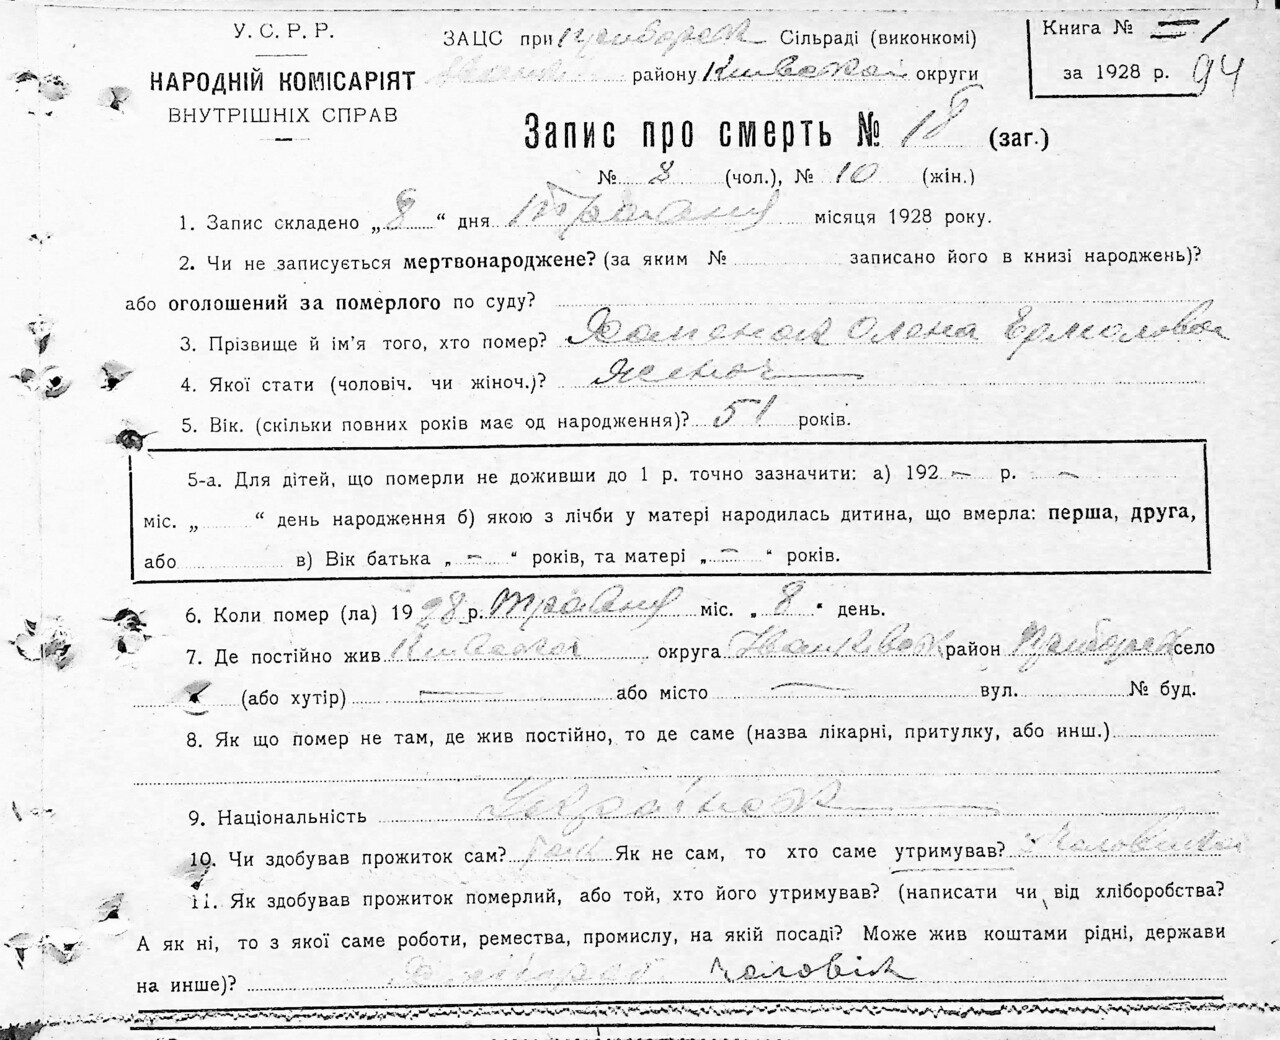 У. С. Р. Р.
НАРОДНІЙ КОМІСАРІЯТ
ВНУТРІШНІХ СПРАВ
ЗАЦС при Сільраді (виконкомі)
району Київської округи
Книга № 1
за 1928 р. 94
Запис про смерть № 18 (заг.)
№ 8 (чол.), № 10 (жін.)
1. Запис складено „ 8 “ дня Травня місяця 1928 року.
2. Чи не записується мертвонароджене? (за яким № записано його в книзі народжень)?
або оголошений за померлого по суду?
3. Прізвище й ім'я того, хто помер? Олена Ермолова
4. Якої стати (чоловіч. чи жіноч.)? Жіноч
5. Вік. (скільки повних років має од народження)? 51 років.
5-а. Для дітей, що померли не доживши до 1 р. точно зазначити: а) 192 — р. —
міс. „ “ день народження б) якою з лічби у матері народилась дитина, що вмерла: перша, друга,
або в) Вік батька „ — “ років, та матері „ — “ років.
6. Коли помер (ла) 1928 р. травня міс. „ 8 “ день.
7. Де постійно жив Київської округа Іванківськ район село
(або хутір) — або місто — вул. № буд.
8. Як що помер не там, де жив постійно, то де саме (назва лікарні, притулку, або инш.)
9. Національність Українка —
10. Чи здобував прожиток сам? Як не сам, то хто саме утримував?
11. Як здобував прожиток померлий, або той, хто його утримував? (написати чи від хліборобства?
А як ні, то з якої саме роботи, ремества, промислу, на якій посаді? Може жив коштами рідні, держави
на инше)? чоловік